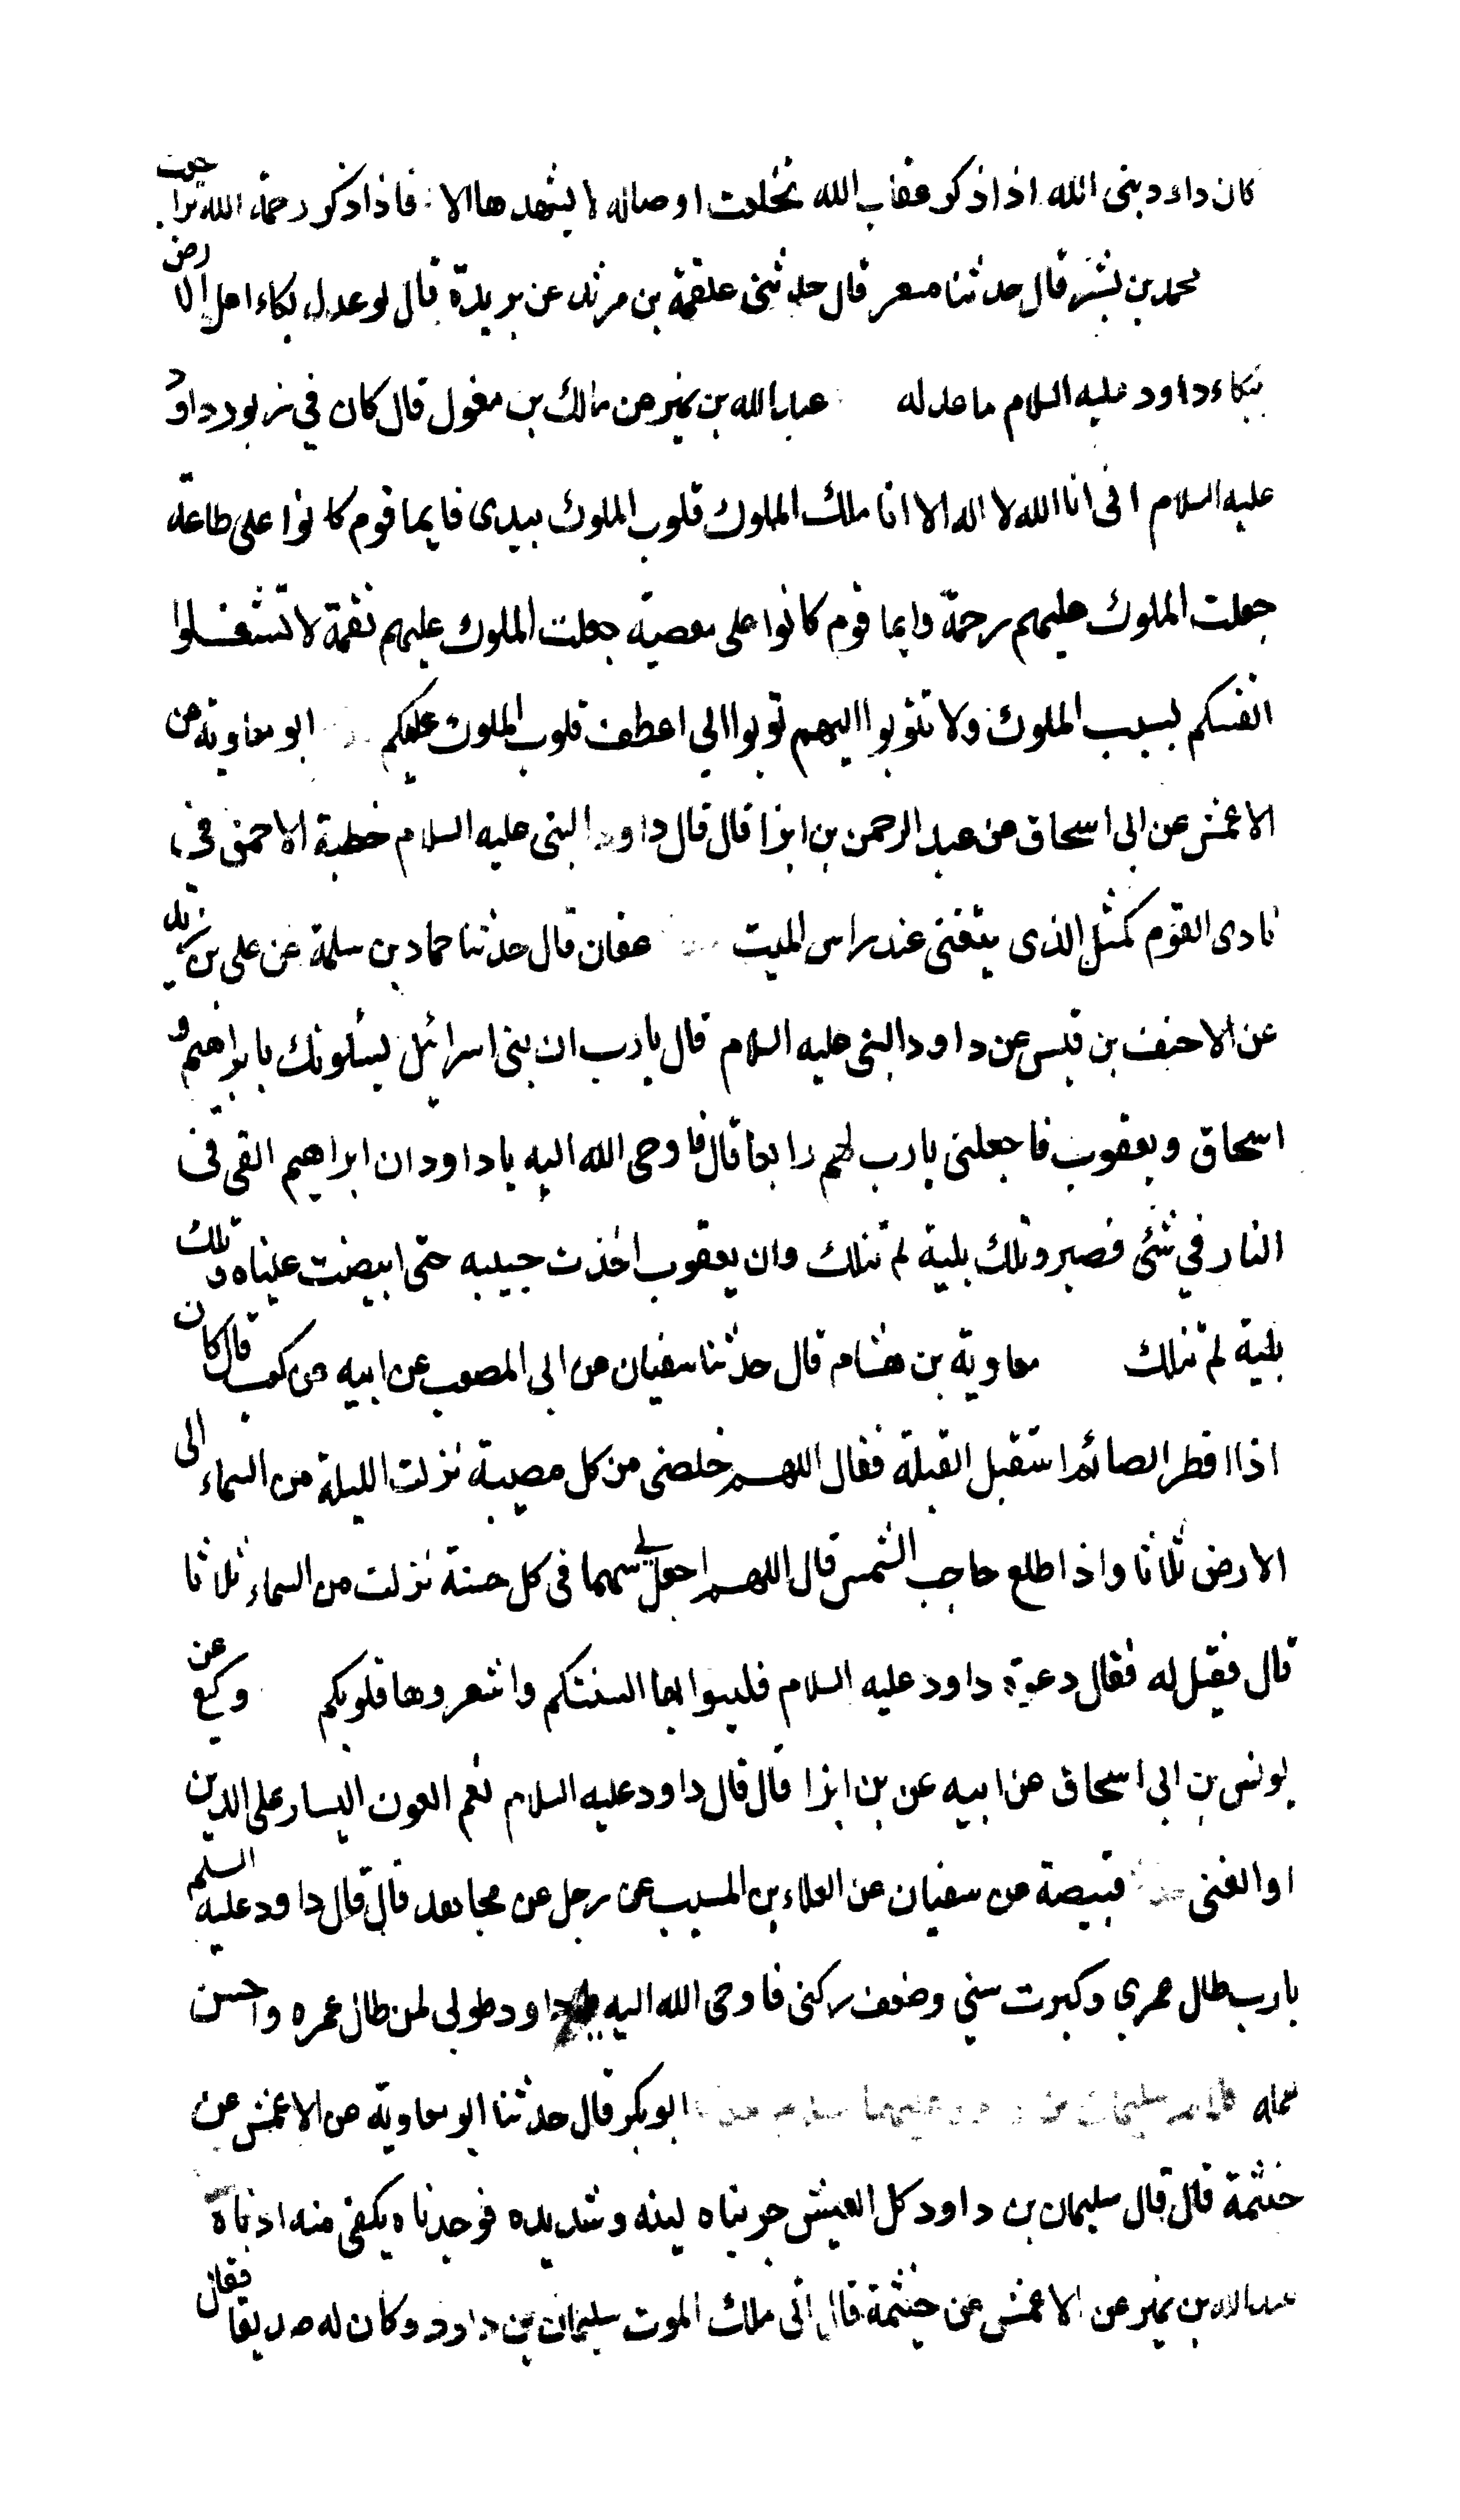 كان داود نبى الله اذا ذكر عقاب الله تخلعت اوصاله لا يشهدها الا فاذا ذكر رحمة الله تراجعت
محمد بن بشر قال حدثنا مسعر قال حدثنى علقمة بن مرثد عن بريدة قال لو عدل بكاء اهل الارض
ببكاء داود عليه السلام ما عدله عبد الله بن نمير عن مالك بن مغول قال كان في زبور داود
عليه السلام انى انا الله لا اله الا انا ملك الملوك قلوب الملوك بيدى فايما قوم كانوا على طاعة
جعلت الملوك عليهم رحمة وايما قوم كانوا على معصية جعلت الملوك عليهم نقمة لا تشغلوا
انفسكم بسبب الملوك ولا تتوبوا اليهم توبوا الي اعطف قلوب الملوك عليكم ابو معاوية عن
الاعمش عن ابى اسحاق عن عبد الرحمن بن ابزا قال قال داود النبى عليه السلام خطبة الاحمق في
نادى القوم كمثل الذى يتغنى عند راس الميت عفان قال حدثنا حماد بن سلمة عن على بن زيد
عن الاحنف بن قيس عن داود النبى عليه السلام قال يا رب ان بنى اسرائل يسئلونك بابراهيم و
اسحاق ويعقوب فاجعلنى يا رب لهم رابعا قال فاوحى الله اليه يا داود ان ابراهيم القى فى
النار في شئ فصبر وتلك بلية لم تنلك وان يعقوب اخذت حبيبه حتى ابيضت عيناه وتلك
بلية لم تنلك معاوية بن هشام قال حدثنا سفيان عن ابى المصعب عن ابيه عن كعب قال كان
اذا افطر الصائم استقبل القبلة فقال اللهم خلصنى من كل مصيبة نزلت الليلة من السماء الى
الارض ثلاثا واذا طلع حاجب الشمس قال اللهم اجعل لي سهما فى كل حسنة نزلت من السماء ثلاثا
قال فقيل له فقال دعوة داود عليه السلام فلينوا بها السنتكم واشعروها قلوبكم وكيع عن
يونس بن ابي اسحاق عن ابيه عن بن ابزا قال قال داود عليه السلام نعم العون اليسار على الدين
او الغنى قبيصة عن سفيان عن العلاء بن المسيب عن رجل عن مجاهد قال قال داود عليه السلم
يا رب طال عمري وكبرت سني وضعف ركنى فاوحى الله اليه داود طوبى لمن طال عمره واحسن
عمله ابو بكر قال حدثنا ابو معاوية عن الاعمش عن
خثيمة قال قال سليمان بن داود كل العيش جربناه لينه وشديده فوجدناه يكفى منه ادناه
عبد الله بن نمير عن الاعمش عن خثيمة قال اتى ملك الموت سليمان بن داود وكان له صديقا فقال